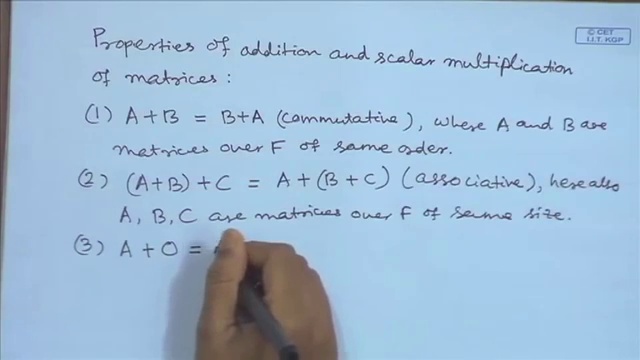 © CET
I.I.T. KGP
Properties of addition and scalar multiplication
of matrices:
(1) A+B = B+A (commutative), where A and B are
matrices over F of same order.
(2) (A+B)+C = A+(B+C) (associative), here also
A, B, C are matrices over F of same size.
(3) A + O =